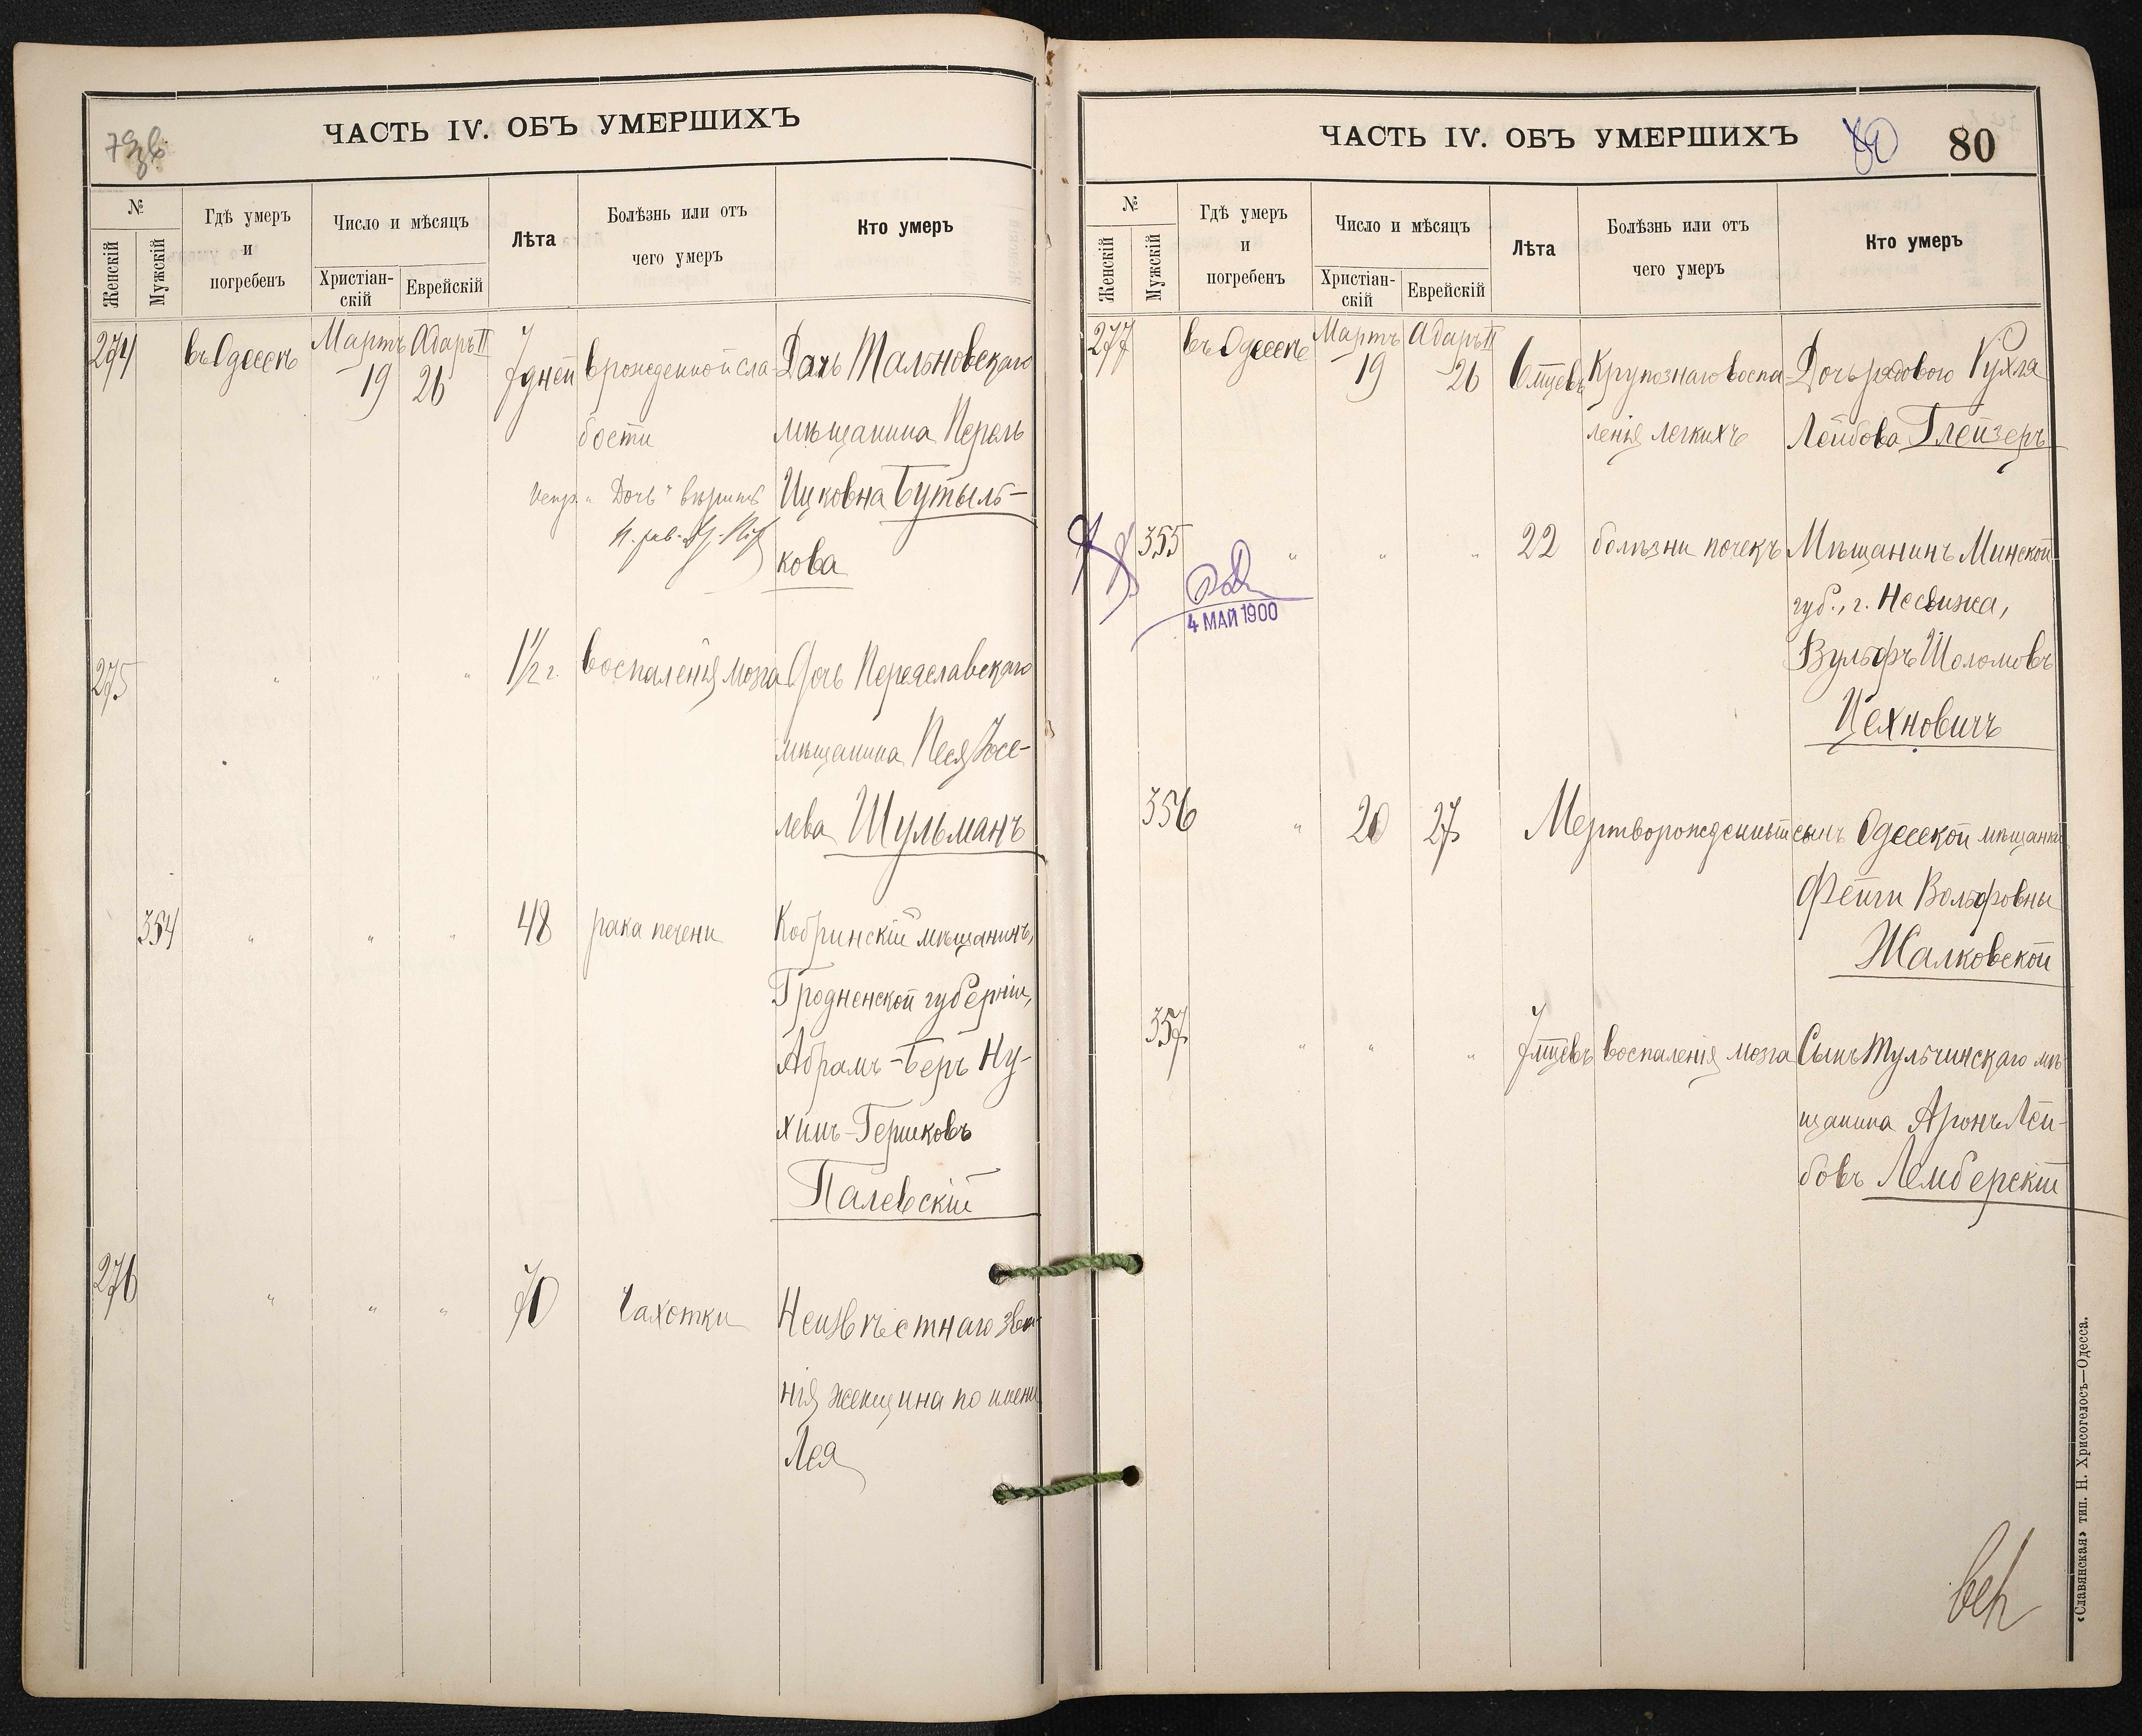 ЧАСТЬ IV. ОБЪ УМЕРШИХЪ
№
Женскій
Мужскій
Гдѣ умеръ
и
погребенъ
Число и мѣсяцъ
Христіан-
скій
Еврейскій
Лѣта
Болѣзнь или отъ
чего умеръ
Кто умеръ
274 въ Одессѣ Мартъ 19 Адаръ II 26 7 дней врожденной сла- Дочь Тальновскаго
бости мѣщанина Перль
Испр. "Дочь" вѣрить Ицковна Бутыль-
кова
275 " " " 1½ г. воспаленія мозга Дочь Переяславскаго
мѣщанина Песя Іосе-
лева Шульманъ
354 " " " 48 рака печени Кобринскій мѣщанинъ,
Гродненской губерніи,
Абрамъ-Беръ Ну-
химъ-Гершковъ
Палевскій
276 " " " 70 Чахотки Неизвѣстнаго зва-
нія женщина по имени
Лея
ЧАСТЬ IV. ОБЪ УМЕРШИХЪ 80 80
№
Женскій
Мужскій
Гдѣ умеръ
и
погребенъ
Число и мѣсяцъ
Христіан-
скій
Еврейскій
Лѣта
Болѣзнь или отъ
чего умеръ
Кто умеръ
277 въ Одессѣ Мартъ 19 Адаръ II 26 6 мцевъ Крупознаго воспа- Дочь рядового Рухля
ленія легкихъ Лейбова Глейзеръ
355 " " " 22 болѣзни почекъ Мѣщанинъ Минской
губ., г. Несвижа,
4 МАЙ 1900
Вульфъ Шоломовъ
Цехновичъ
356 " 20 27 Мертворожденный сынъ Одесской мѣщанки
Фейги Вольфовны
Жалковской
357 " " " 7 мцевъ воспаленія мозга Сынъ Тульчинскаго мѣ-
щанина Аронъ Лей-
бовъ Лемберскій
«Славянская» тип. Н. Хрисогелосъ—Одесса.